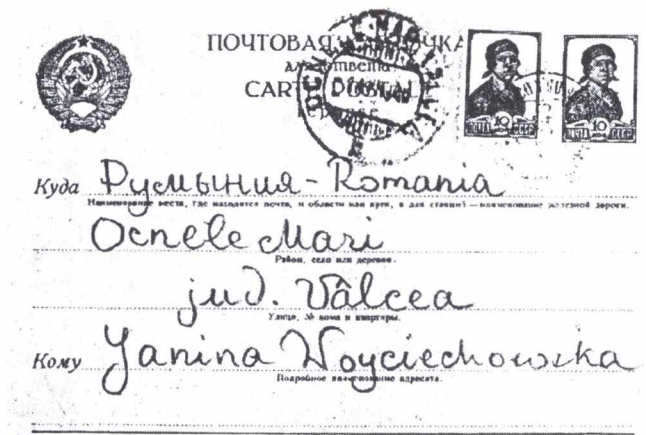 ПОЧТОВАЯ КАРТОЧКА
CARTE POSTALE
10 10
ПОЧТА СССР ПОЧТА СССР
Куда Румыния - Romania
Наименование места, где находится почта, и области или края, а для станций — наименование железной дороги.
Ocnele Mari
Район, село или деревня.
jud. Vâlcea
Улица, № дома и квартиры.
Кому Janina Woyciechowska
Подробное наименование адресата.